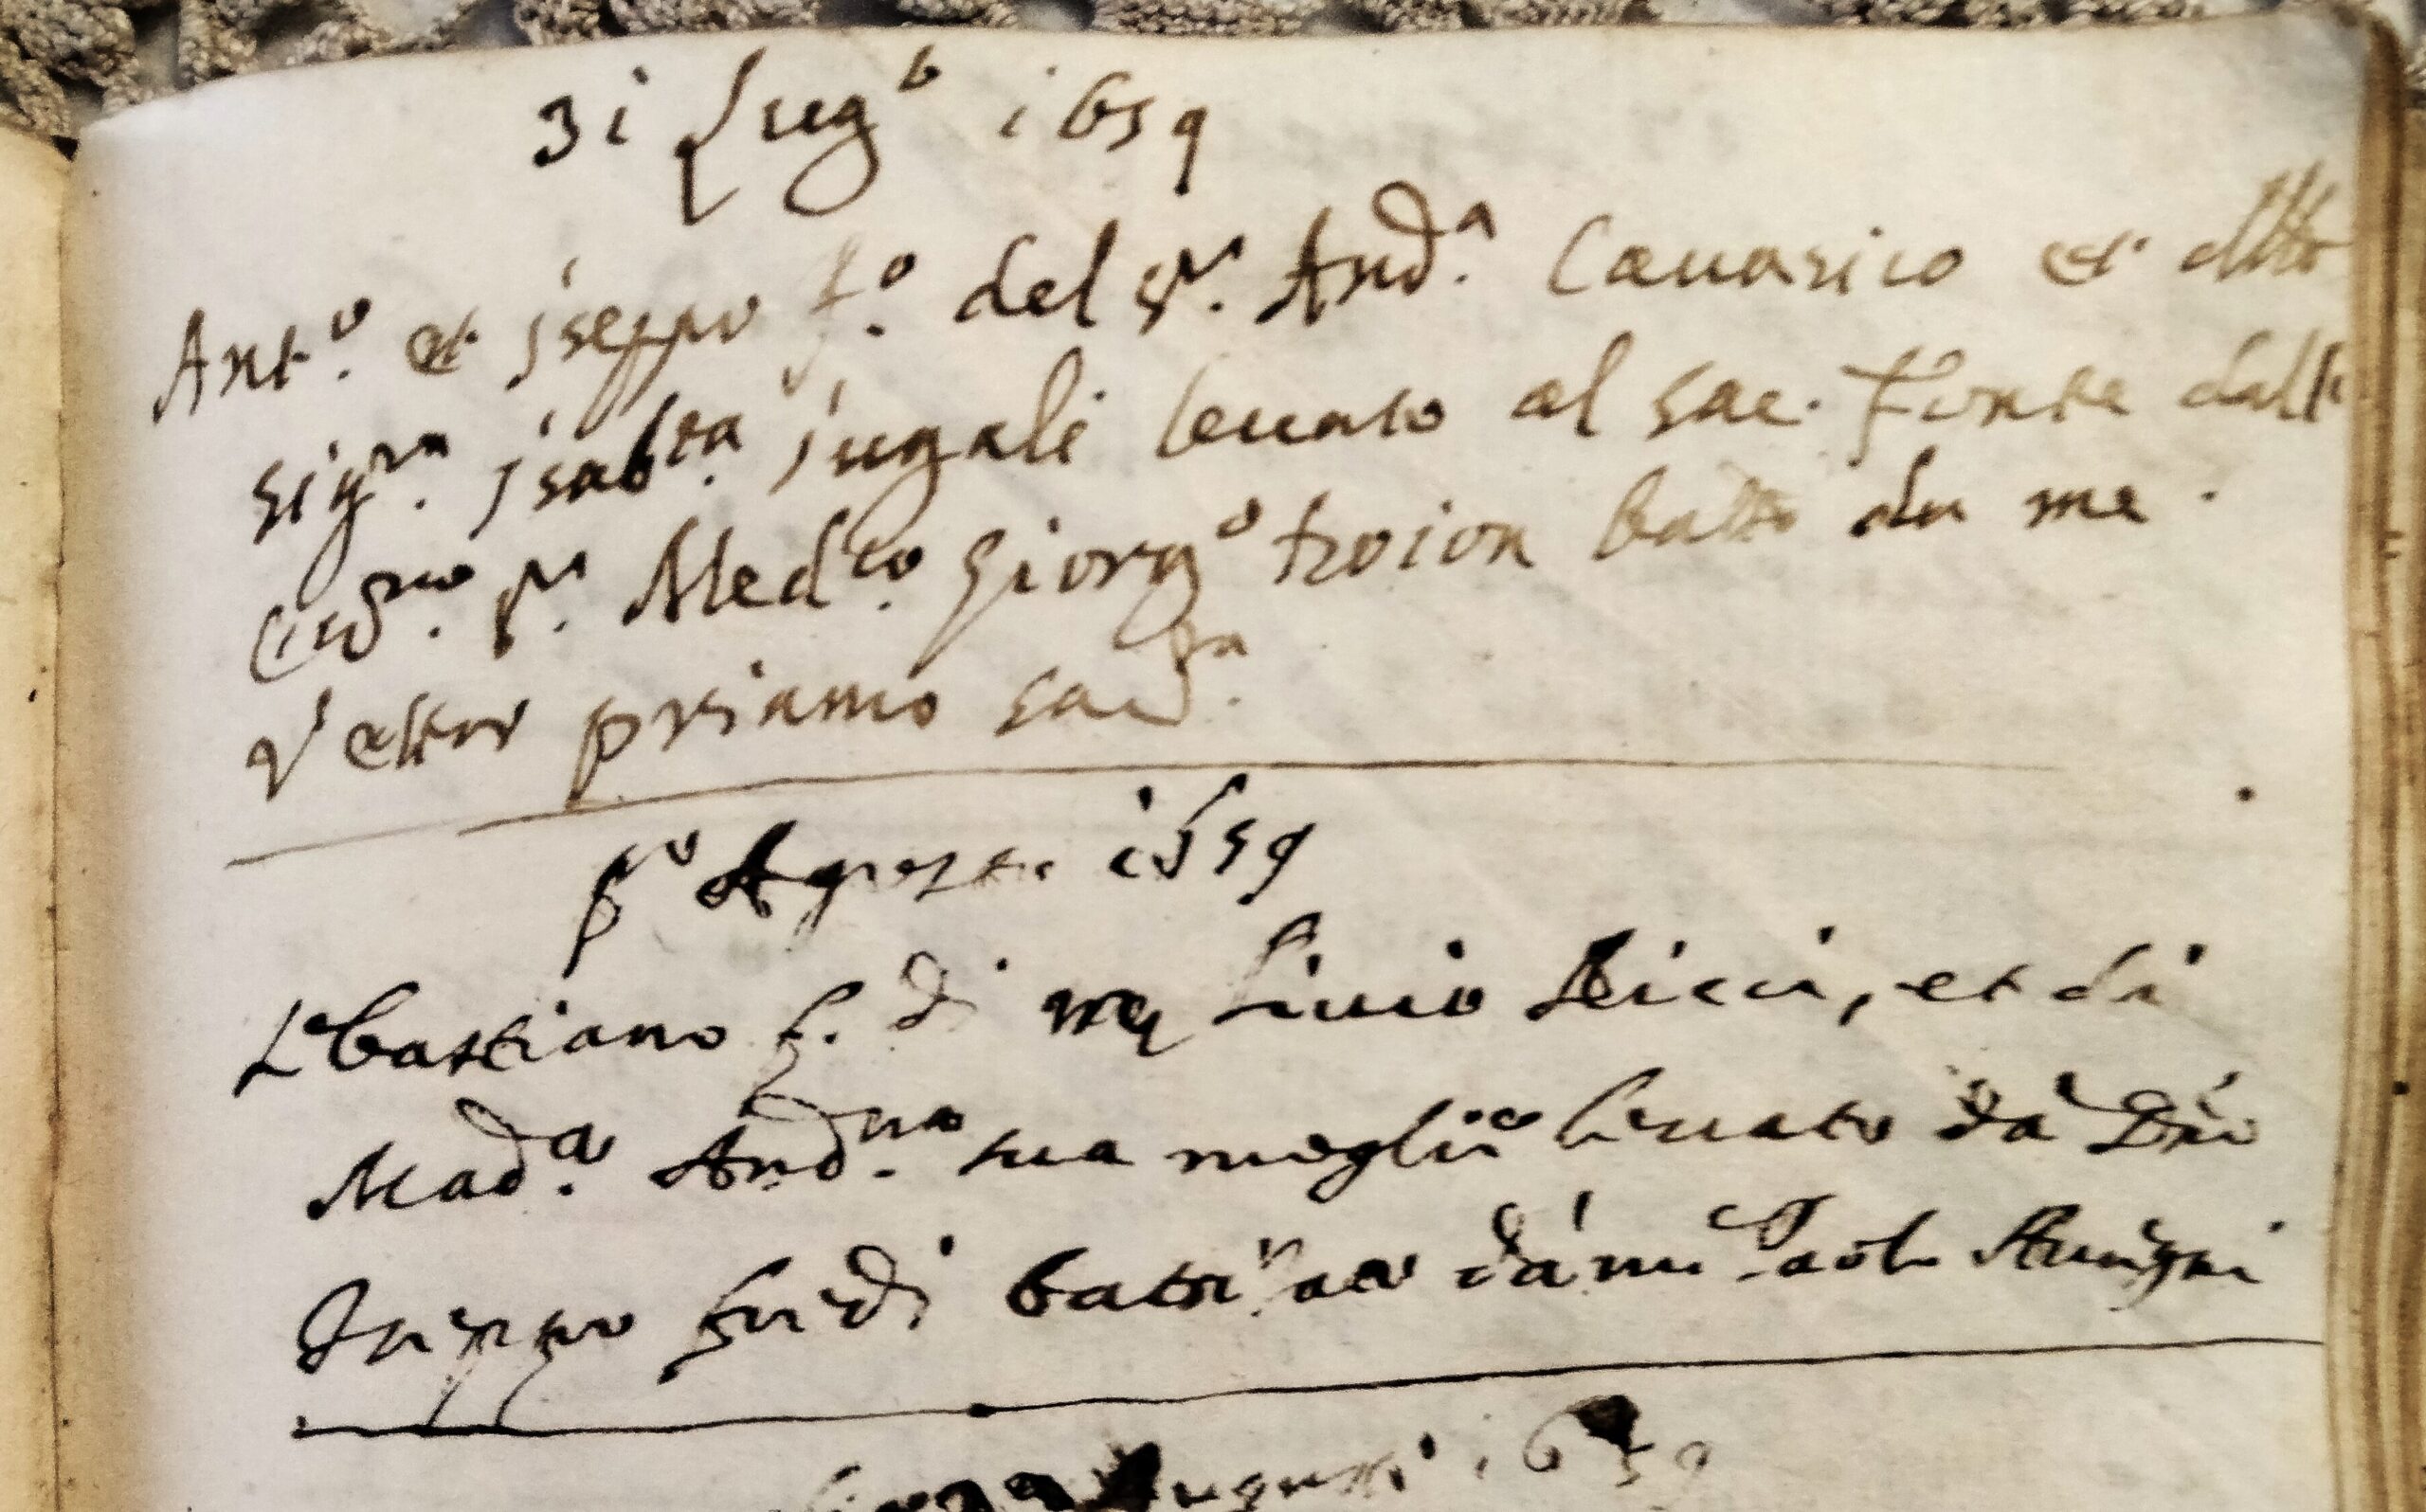 31 Lug° 1659
Ant.° et Iseppo f.° del S.r And.a Cauarico et della
Sig.ra Isab.ta iugali leuato al sac. fonte dall
S.r Med.co Giorg° troion batt° da me
Vettor priamo sac
p° Agosto 1659
Sebastiano f. di Liuio Ricci, et di
Mad.a And.na sua moglie leuato da
Iseppo battizato da me
Augusti 1659